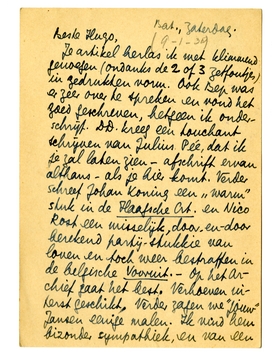 Bat., Zaterdag.
(9-1-37)
Beste Hugo,
Je artikel herlas ik met klimmend
genoegen (ondanks de 2 of 3 zetfoutjes)
in gedrukten vorm. Ook Bep was
er zéér over te spreken en vond het
goed geschreven, hetgeen ik onder-
schrijf. D.D. kreeg een touchant
schrijven van Julius Pée, dat ik
je zal laten zien - afschrift ervan
althans - als je hier komt. Verder
schreef Johan Koning een "warm"
stuk in de Haagsche Crt. en Nico
Rost een misselijk, door-en-door
berekend partij-stukkie van
loven en toch weer bestraffen in
de belgische Vooruit. - Op het Ar-
chief gaat het best. Verhoeven in-
berst geschikt. Verder zagen we "jouw"
Jansen eenige malen. Ik vind hem
bizonder sympathiek, en van een